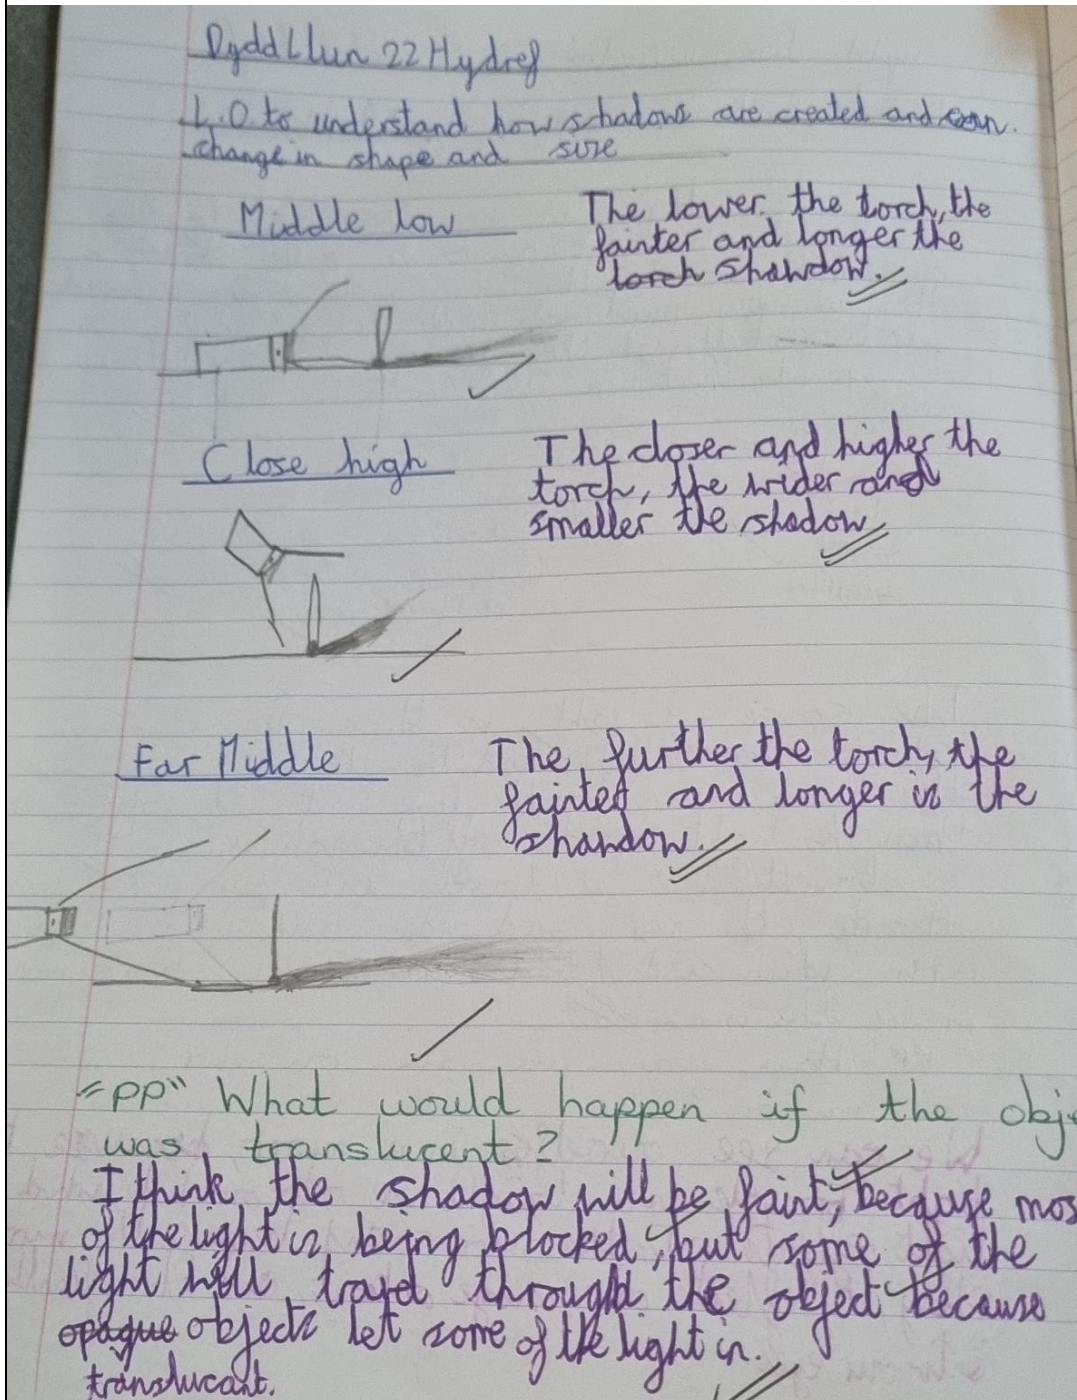 Dydd Llun 22 Hydref
L.O to understand how shadows are created and can
change in shape and size
Middle low
The lower the torch, the
fainter and longer the
torch shawdow.
Close high
The closer and higher the
torch, the wider and
smaller the shadow
Far Middle
The further the torch, the
fainter and longer is the
shandow.
"PP" What would happen if the obje
was translucent?
I think the shadow will be faint, because mos
of the light is being blocked, but some of the
light will travel through the object because
opaque objects let some of the light in.
translucant.